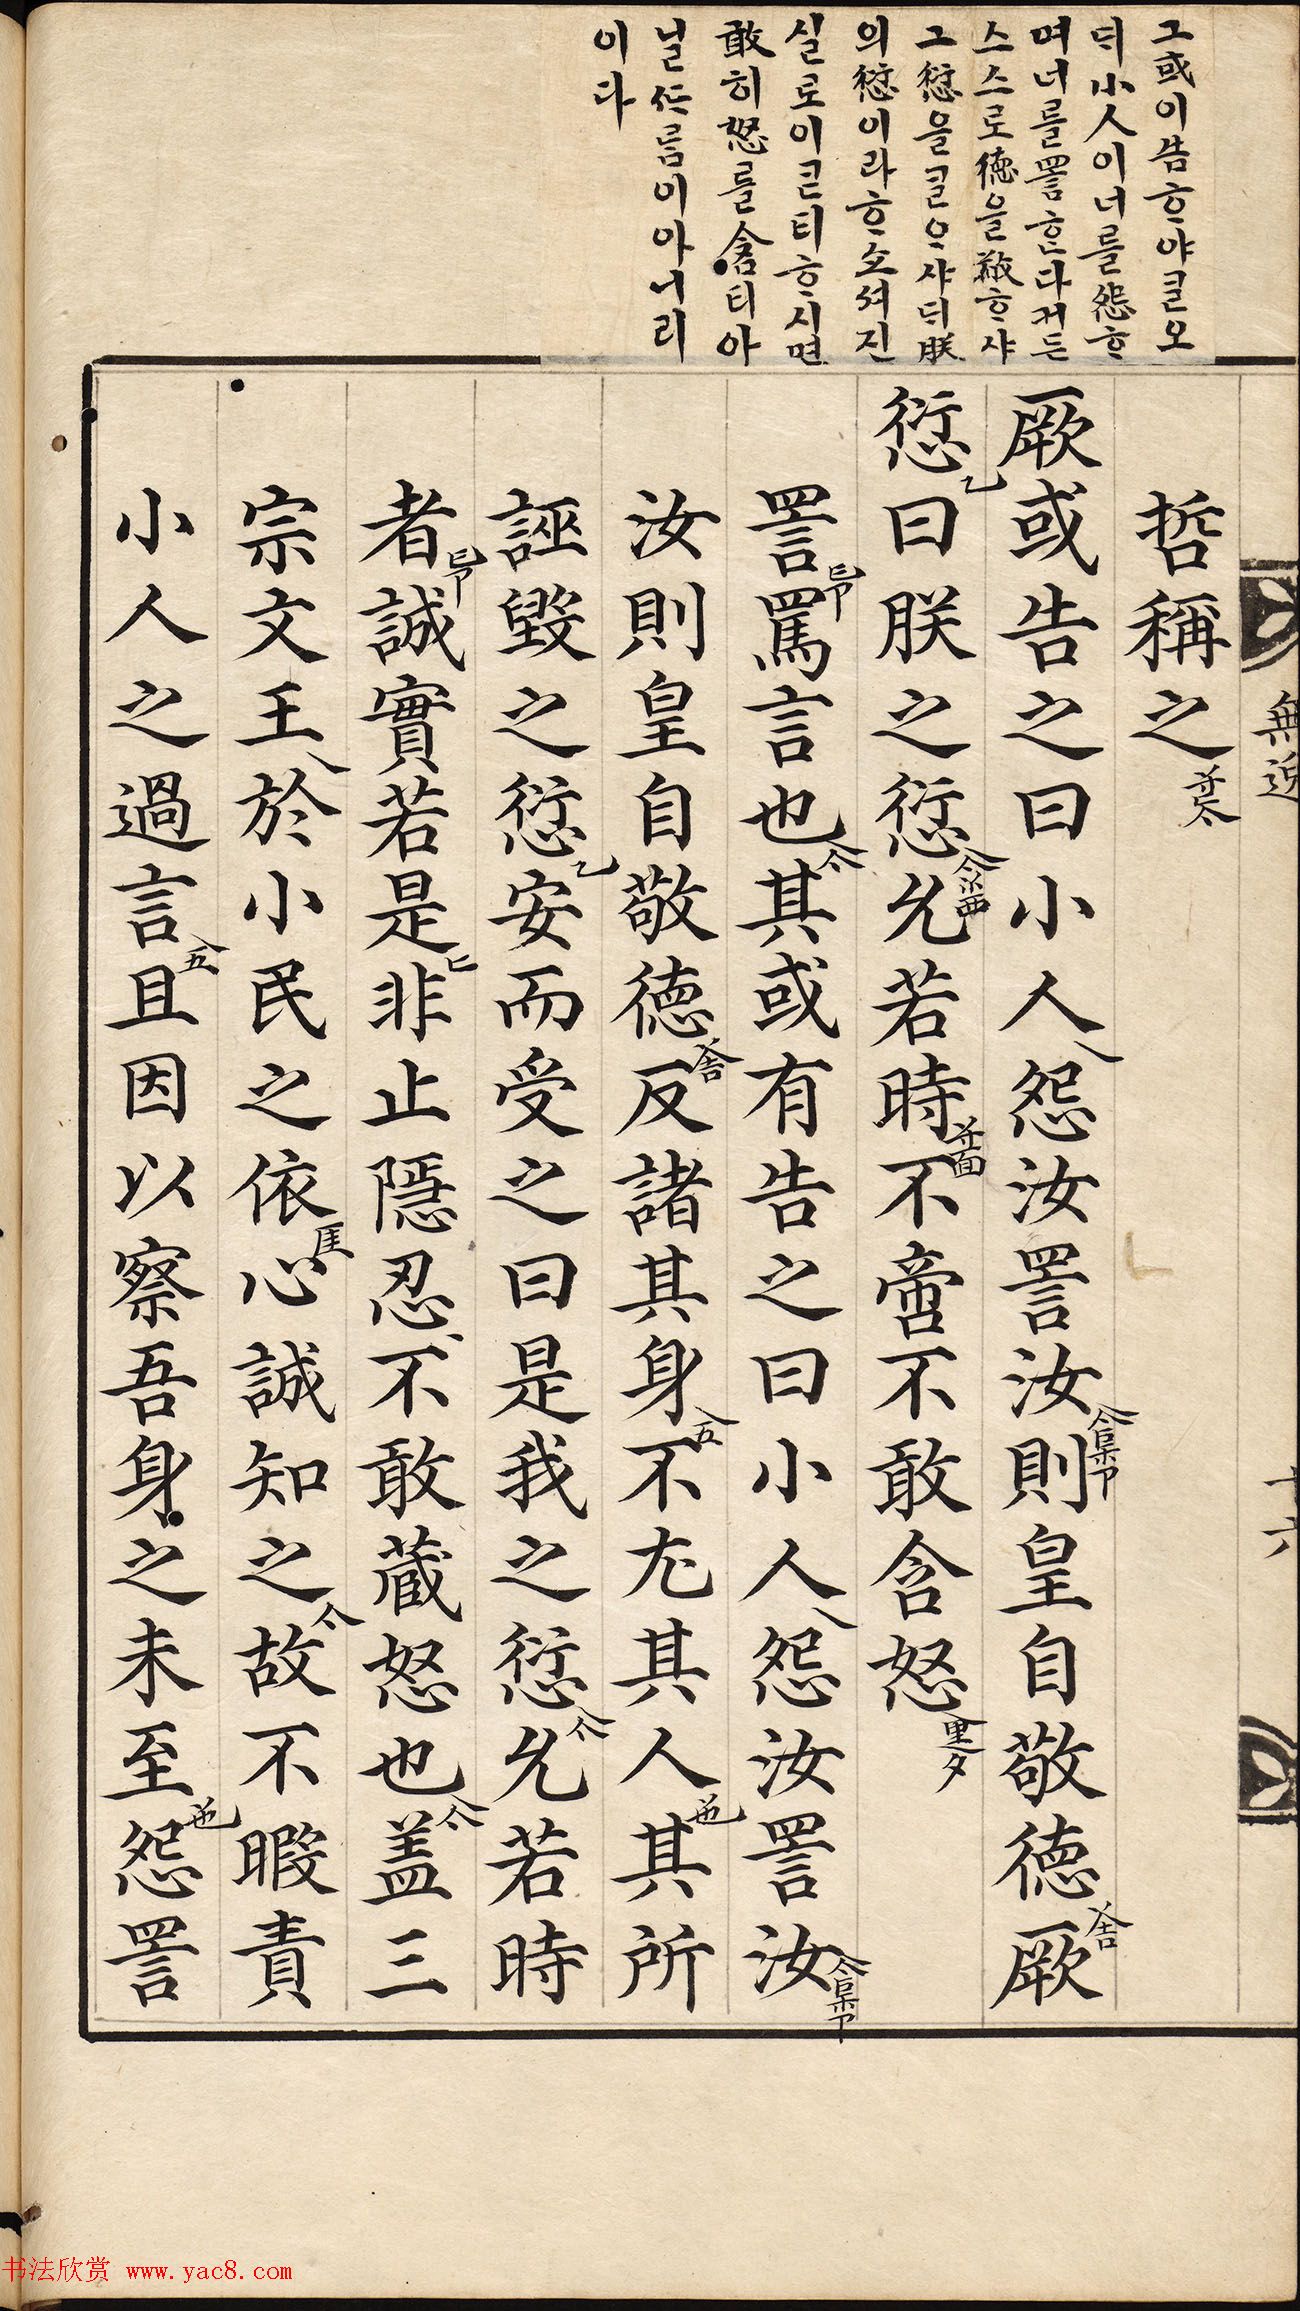 그或이告ᄒᆞ야ᄀᆞᆯ오
ᄃᆡ小人이너를怨ᄒᆞ
며너를詈ᄒᆞᆫ다커든
스스로德을敬ᄒᆞ샤
그愆을ᄀᆞᆯᄋᆞ샤ᄃᆡ朕
의愆이라ᄒᆞ소셔진
실로이ᄀᆞᆮ티ᄒᆞ시면
敢히怒를含티아
닐ᄯᆞ름이아니리
이다
無逸
十六
哲稱之
厥或告之曰小人怨汝詈汝則皇自敬德厥
愆曰朕之愆允若時不啻不敢含怒
詈罵言也其或有告之曰小人怨汝詈汝
汝則皇自敬德反諸其身不尤其人其所
誣毀之愆安而受之曰是我之愆允若時
者誠實若是非止隱忍不敢藏怒也盖三
宗文王於小民之依心誠知之故不暇責
小人之過言且因以察吾身之未至怨詈
书法欣赏 www.yac8.com